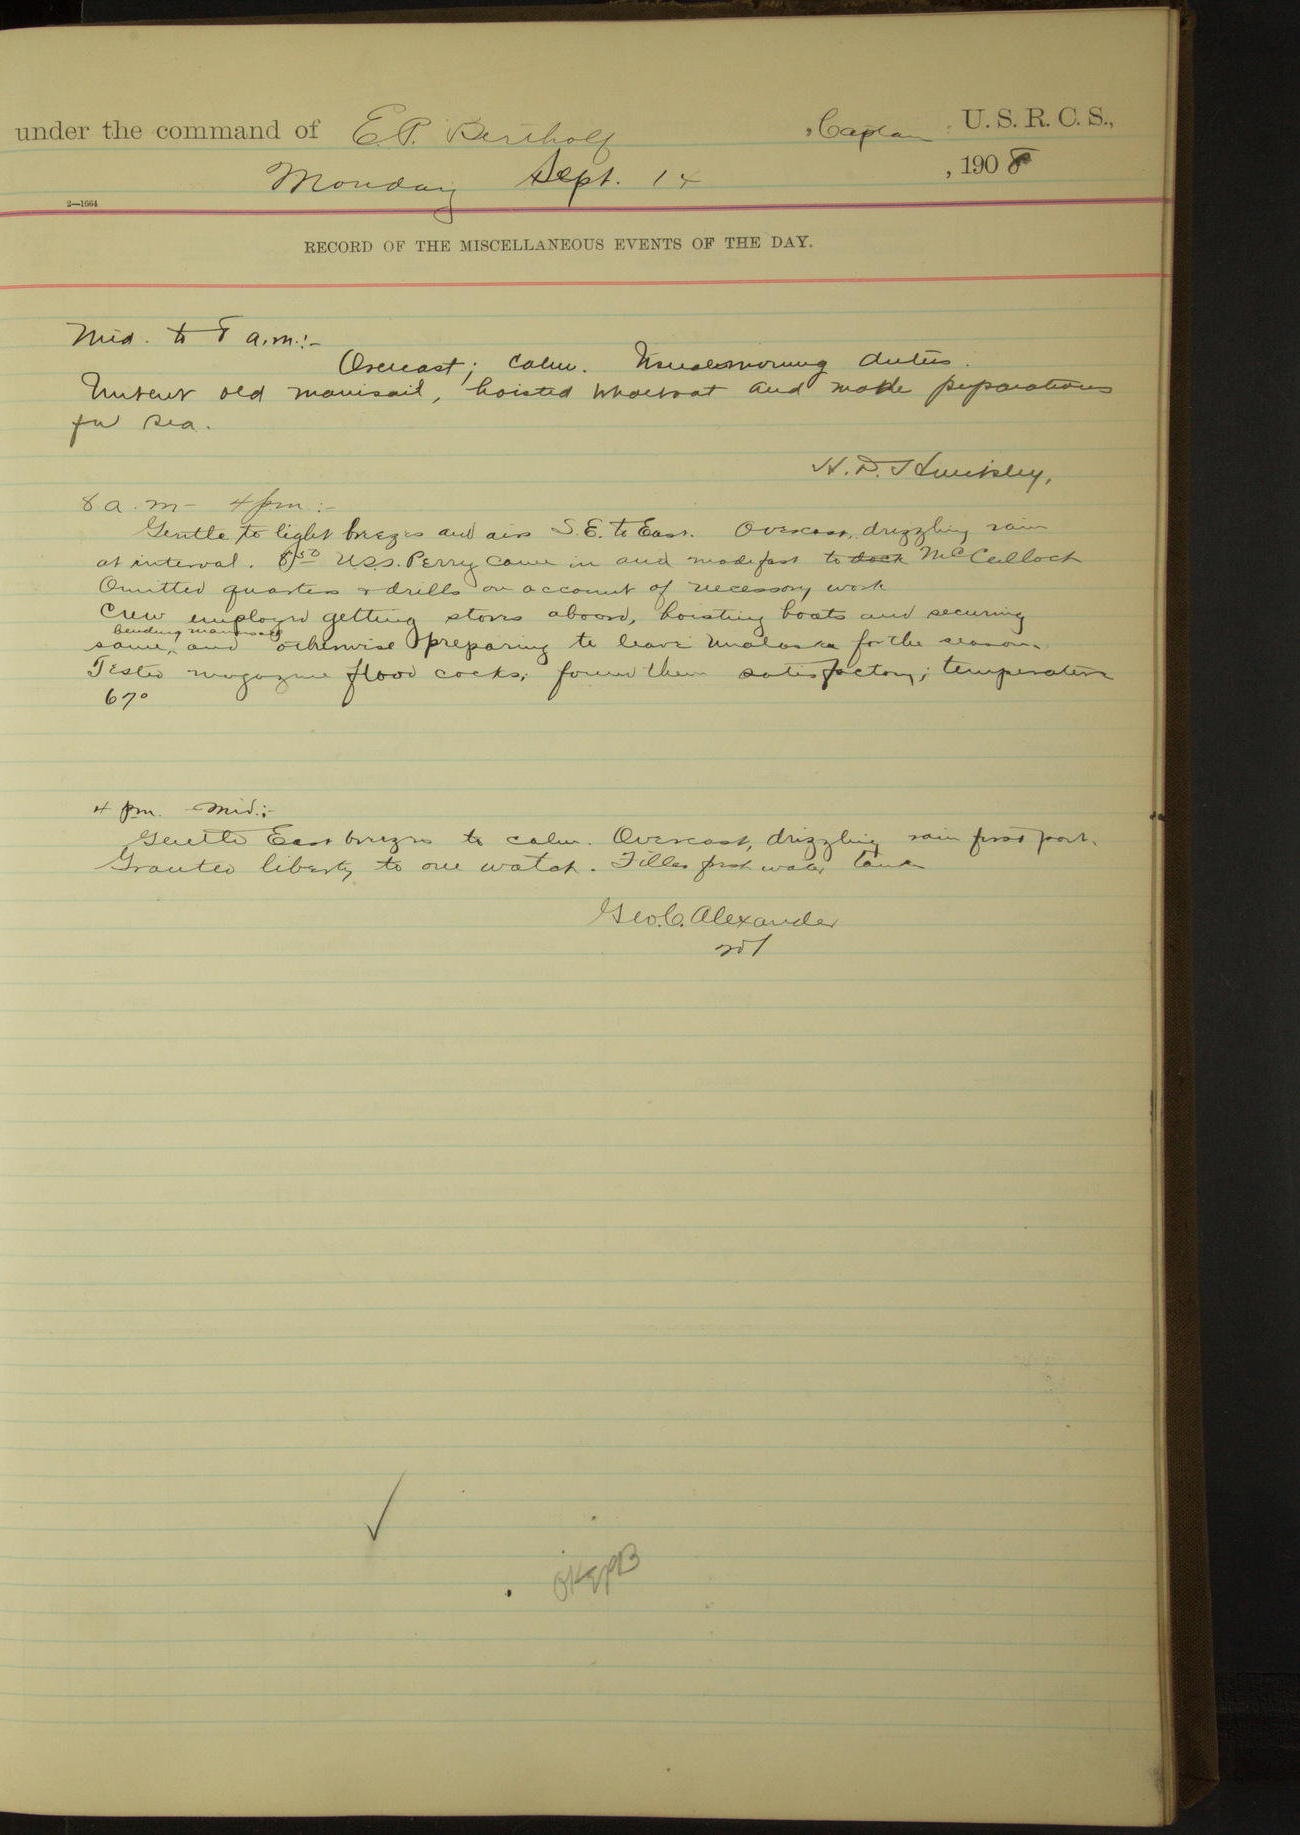 under the command of E. P. Bertholf , Captain U. S. R. C. S.,
Monday Sept. 14 , 1908
2—1664
RECORD OF THE MISCELLANEOUS EVENTS OF THE DAY.
Mid. to 8 a.m.:-
Overcast; calm. Usual morning duties.
Unbent old mainsail, hoisted whaleboat and made preparations
for sea.
H. D. Hinckley,
8 a.m - 4 pm :-
Gentle to light breezes and airs S.E. to East. Overcast, drizzling rain
at interval. 8 50 U.S.S. Perry came in and made fast to dock McCulloch
Omitted quarters & drills on account of necessary work
Crew employed getting stores aboard, hoisting boats and securing
bending mainsail
same, and otherwise preparing to leave Unalaska for the season.
Tested magazine flood cocks; found them satisfactory; temperature
67°
4 pm. - Mid.:-
Gentle East breezes to calm. Overcast, drizzling rain first part.
Granted liberty to one watch. Filled fresh water tank
Geo. C. Alexander
OK EPB